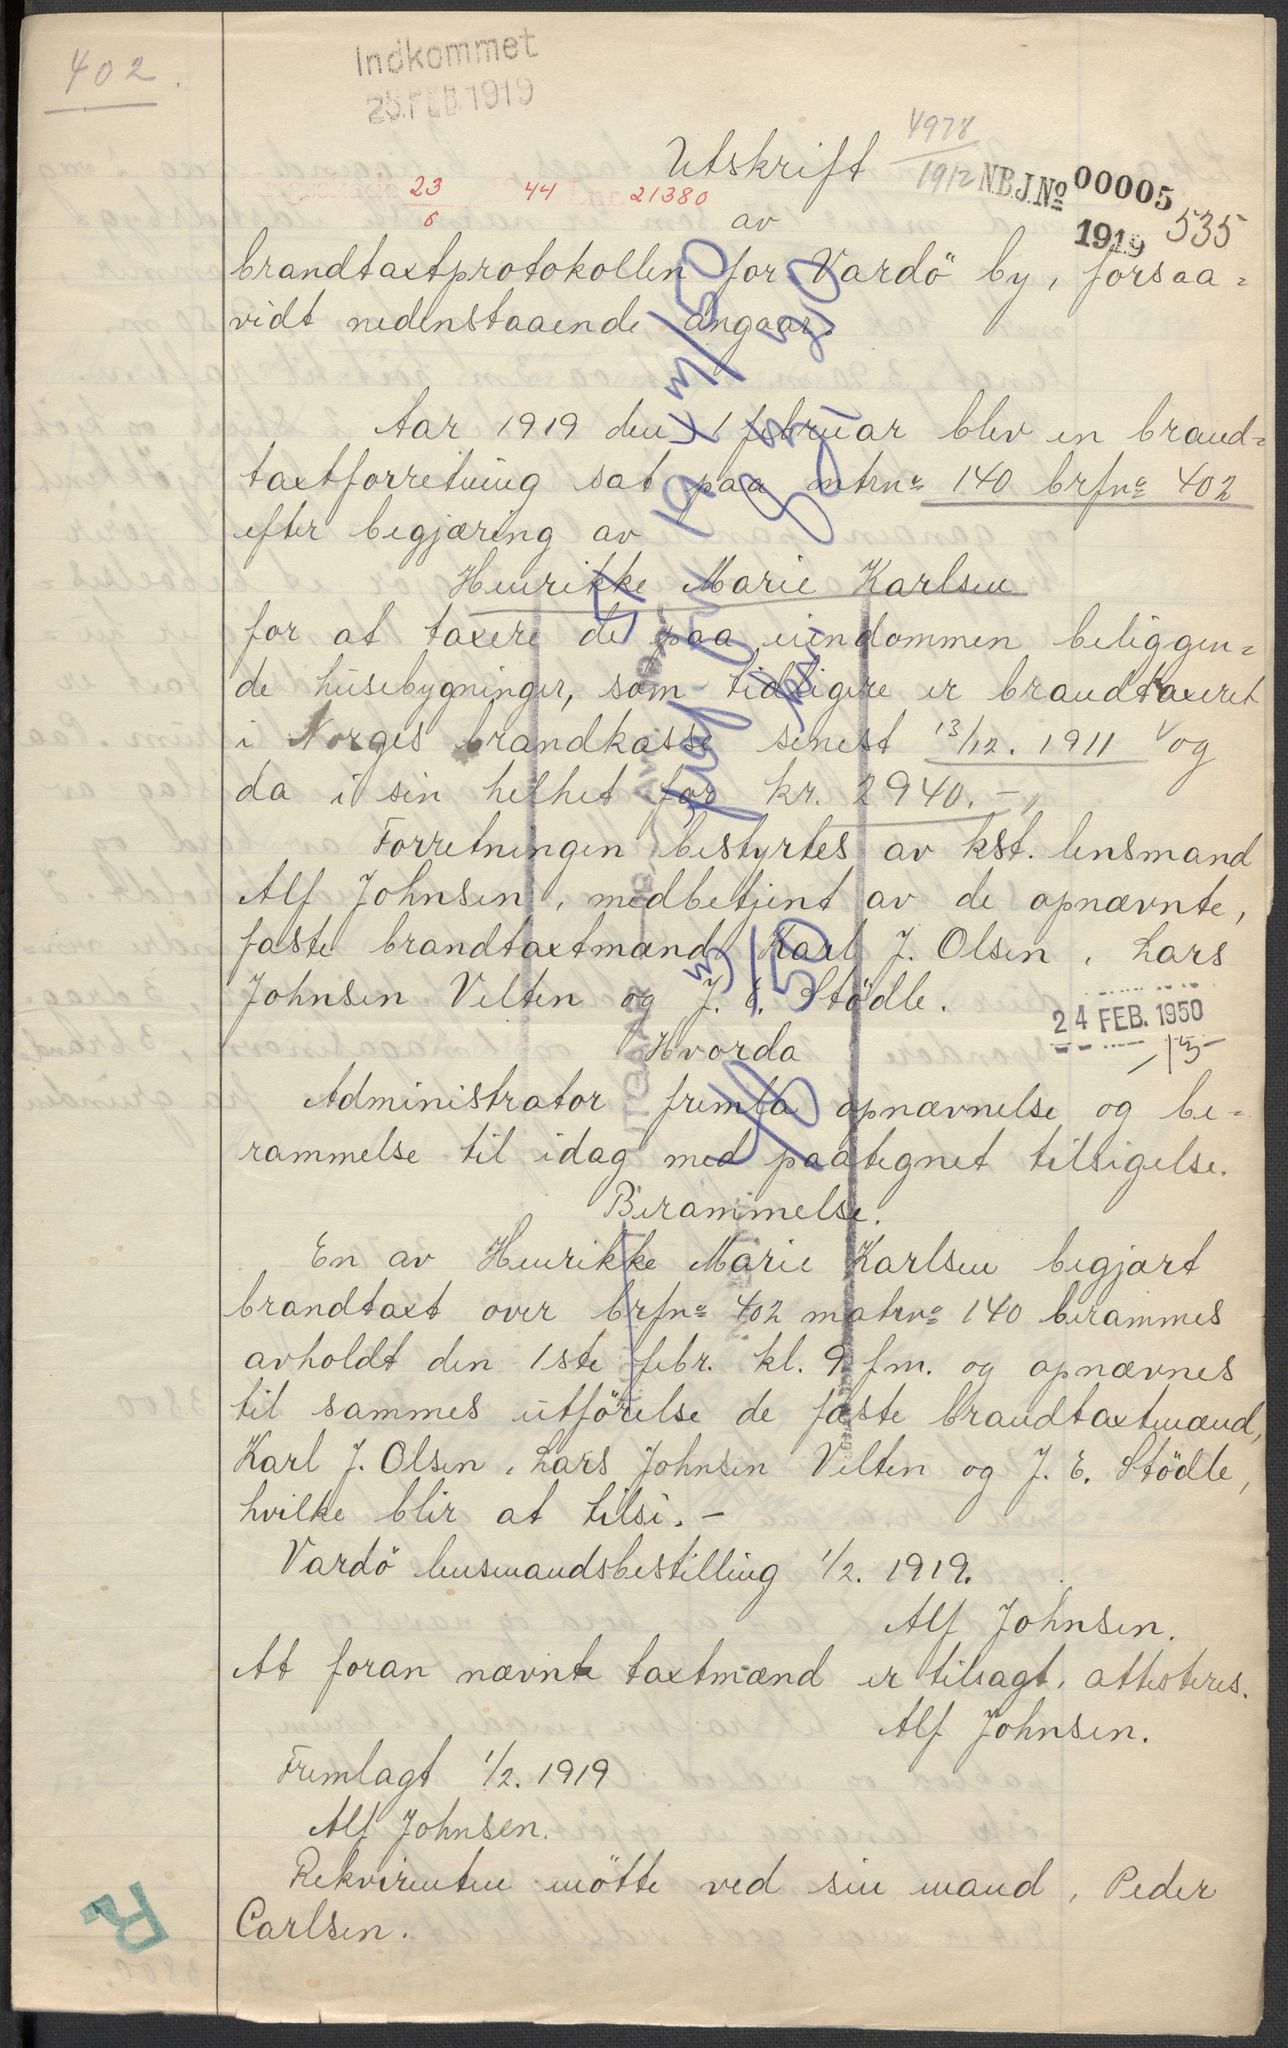 402.
Indkommet
25. FEB. 1919
Utskrift
4978
1912
N.B.J. No 00005
1919
535
23
6
44
21380
av
brandtaxtprotokollen for Vardö by, forsaa=
vidt nedenstaaende angaar.
Aar 1919 den 1 februar blev en brand=
taxtforretning sat paa mtrno 140 brfno 402
efter begjæring av
Henrikke Marie Karlsen
for at taxere de paa eiendommen beliggen=
de husebygninger, som tidligere er brandtaxeret
i Norges brandkasse senest 13/12. 1911 og
da i sin helhet for kr. 2940.-,
Forretningen bestyrtes av kst. lensmand
Alf Johnsen, medbetjent av de opnævnte,
faste brandtaxtmænd Karl J. Olsen, Lars
Johnsen Velten og J. E. Stödle.
24 FEB. 1950
Hvorda
Administrator fremla opnævnelse og be=
rammelse til idag med paategnet tilsigelse.
Berammelse.
En av Henrikke Marie Karlsen begjært
brandtaxt over brfno 402 matrno 140 berammes
avholdt den 1ste febr. kl. 9 fm. og opnævnes
til sammes utförelse de faste brandtaxtmænd,
Karl J. Olsen, Lars Johnsen Velten og J. E. Stödle,
hvilke blir at tilsi. -
Vardö lensmandsbestilling 1/2. 1919.
Alf Johnsen.
At foran nævnte taxtmænd er tilsagt, attesteres.
Alf Johnsen.
Fremlagt 1/2. 1919
Alf Johnsen.
Rekvirenten mötte ved sin mand, Peder
Carlsen.
R